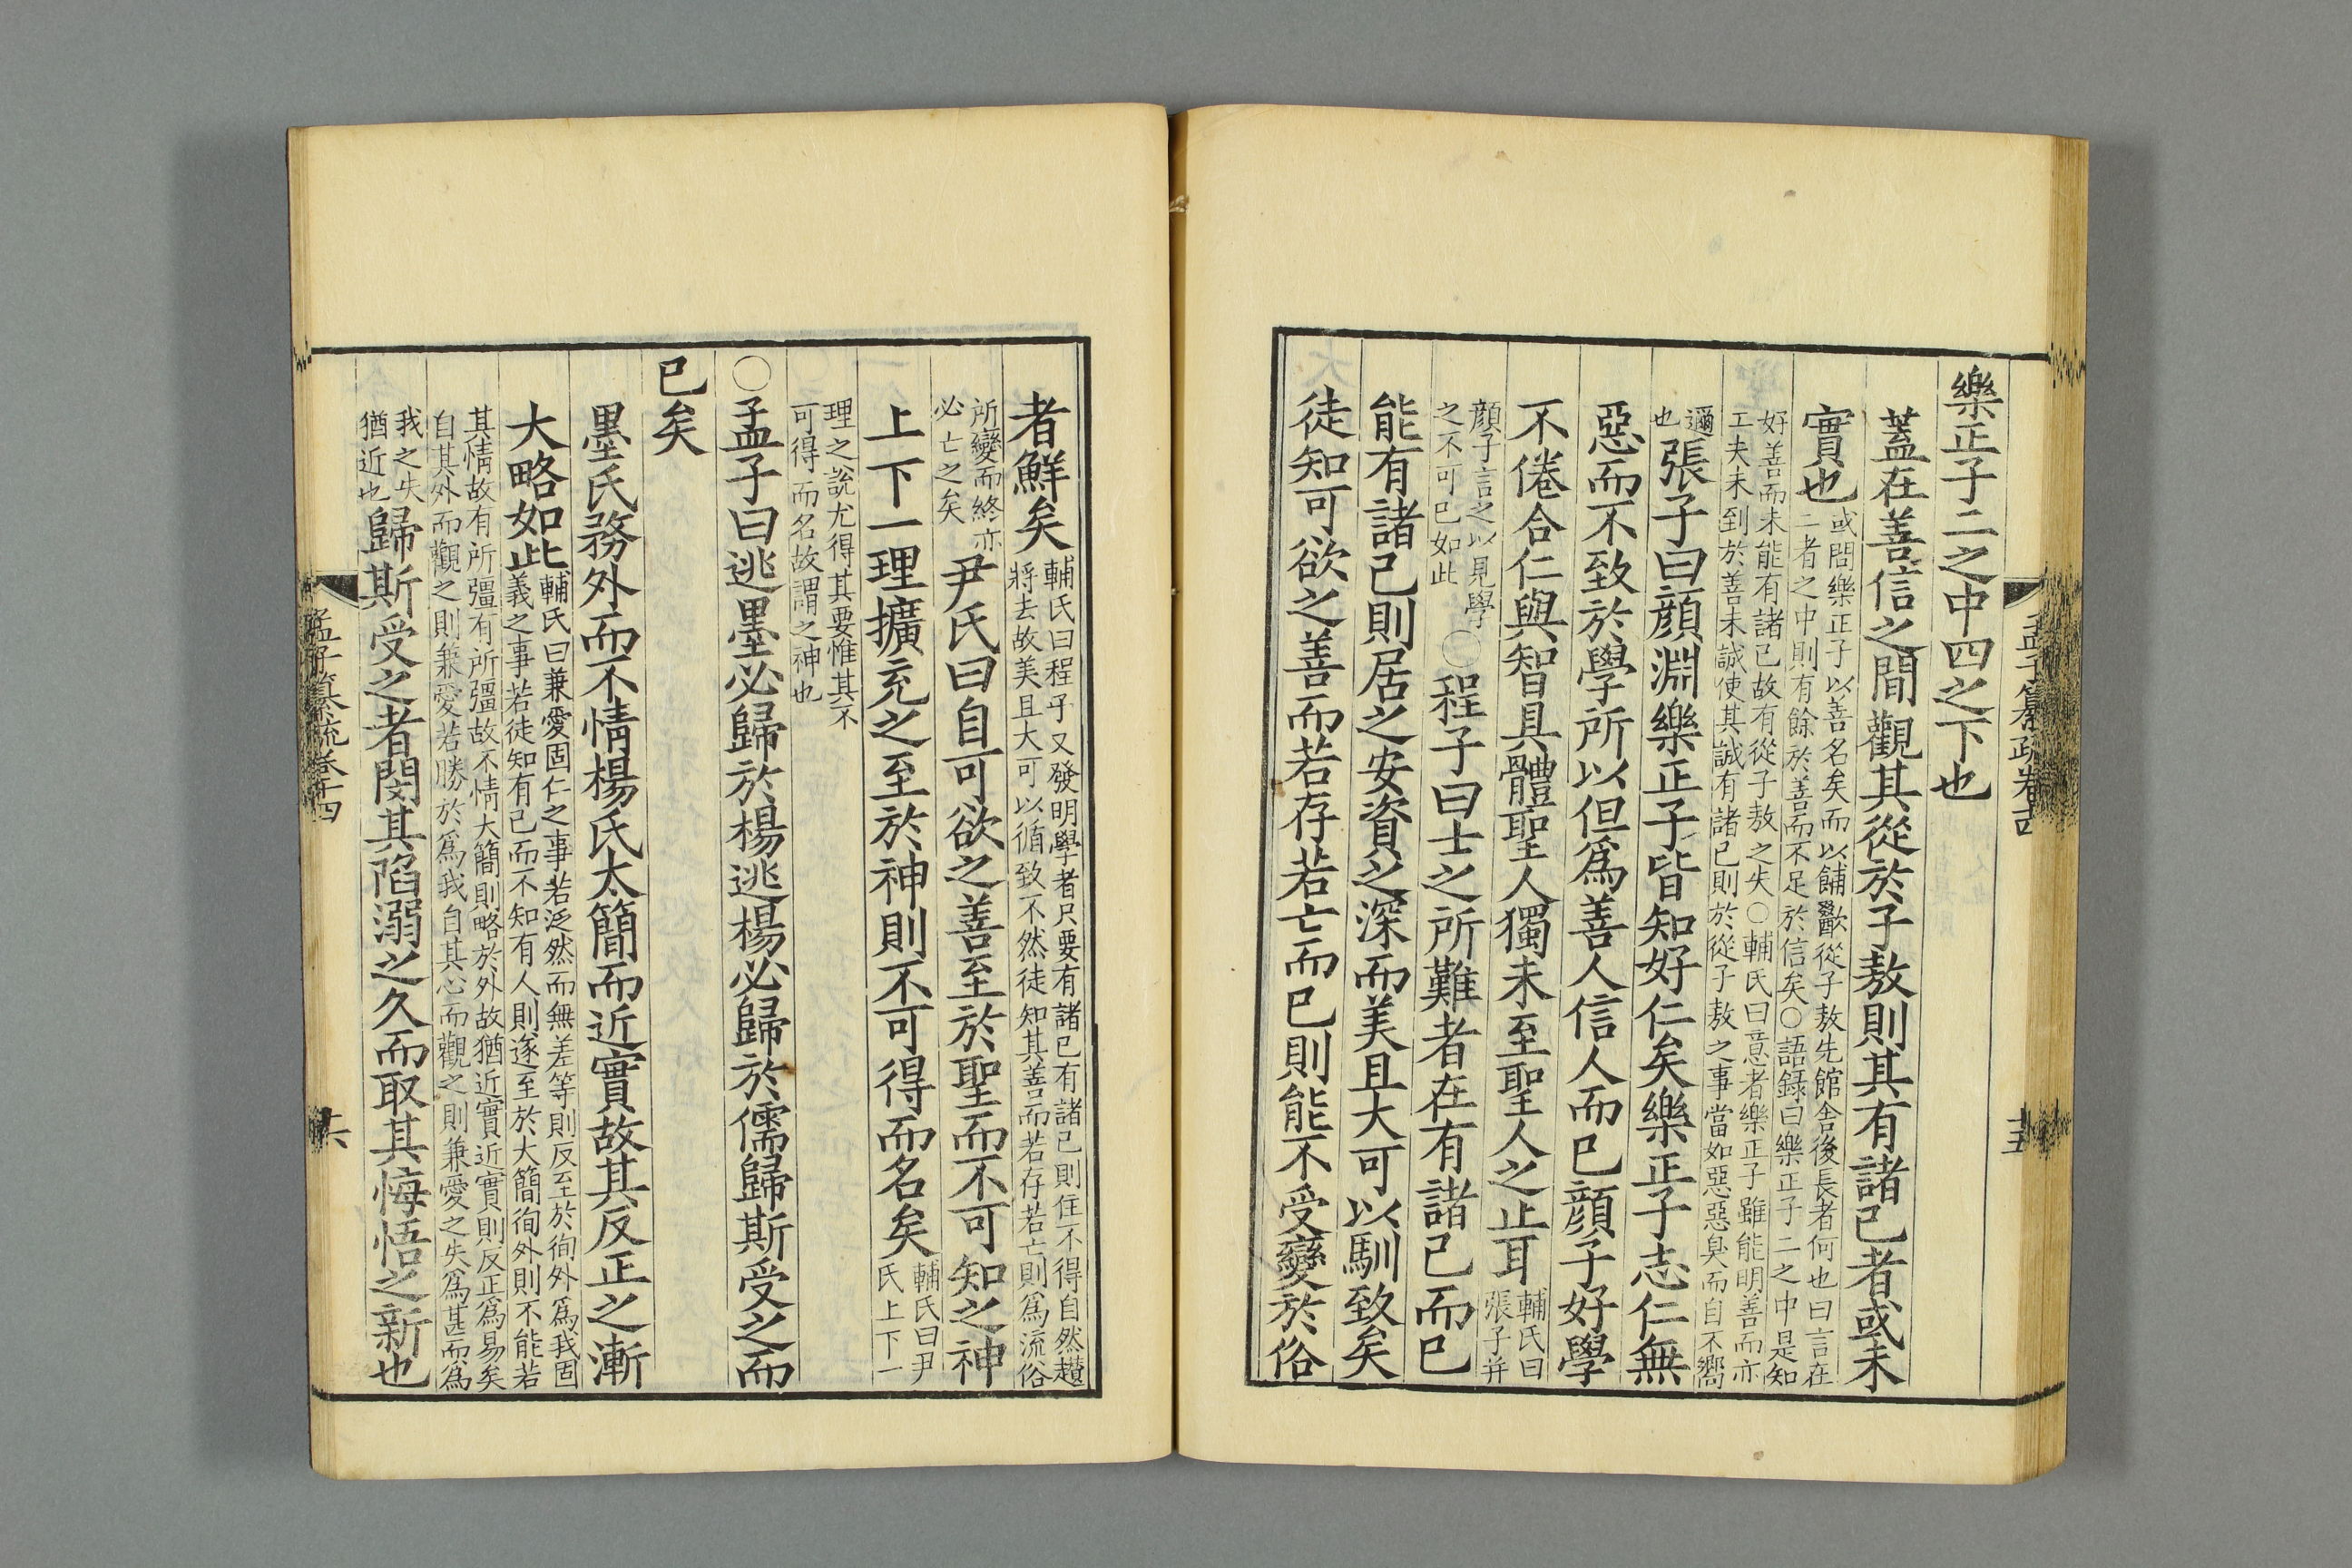 孟子纂疏卷十四
十五
樂正子二之中四之下也
蓋在善信之間觀其從於子敖則其有諸己者或未
實也
或問樂正子以善名矣而以餔歠從子敖先館舍後長者何也曰言在
二者之中則有餘於善而不足於信矣○語録曰樂正子二之中是知
好善而未能有諸己故有從子敖之失○輔氏曰意者樂正子雖能明善而亦
工夫未到於善未誠使其誠有諸己則於從子敖之事當如惡惡臭而自不嚮
邇
也
張子曰顔淵樂正子皆知好仁矣樂正子志仁無
惡而不致於學所以但爲善人信人而已顔子好學
不倦合仁與智具體聖人獨未至聖人之止耳
輔氏曰
張子并
顔子言之以見學
之不可已如此
○程子曰士之所難者在有諸己而已
能有諸己則居之安資之深而美且大可以馴致矣
徒知可欲之善而若存若亡而已則能不受變於俗
者鮮矣
輔氏曰程子又發明學者只要有諸己有諸己則住不得自然趲
將去故美且大可以循致不然徒知其善而若存若亡則爲流俗
所變而終亦
必亡之矣
尹氏曰自可欲之善至於聖而不可知之神
上下一理擴充之至於神則不可得而名矣
輔氏曰尹
氏上下一
理之說尤得其要惟其不
可得而名故謂之神也
○孟子曰逃墨必歸於楊逃楊必歸於儒歸斯受之而
已矣
墨氏務外而不情楊氏太簡而近實故其反正之漸
大略如此
輔氏曰兼愛固仁之事若泛然而無差等則反至於徇外爲我固
義之事若徒知有己而不知有人則遂至於大簡徇外則不能若
其情故有所彊有所彊故不情大簡則略於外故猶近實近實則反正爲易矣
自其外而觀之則兼愛若勝於爲我自其心而觀之則兼愛之失爲甚而爲
我之失
猶近也
歸斯受之者閔其陷溺之久而取其悔悟之新也
孟子纂疏卷十四
十六